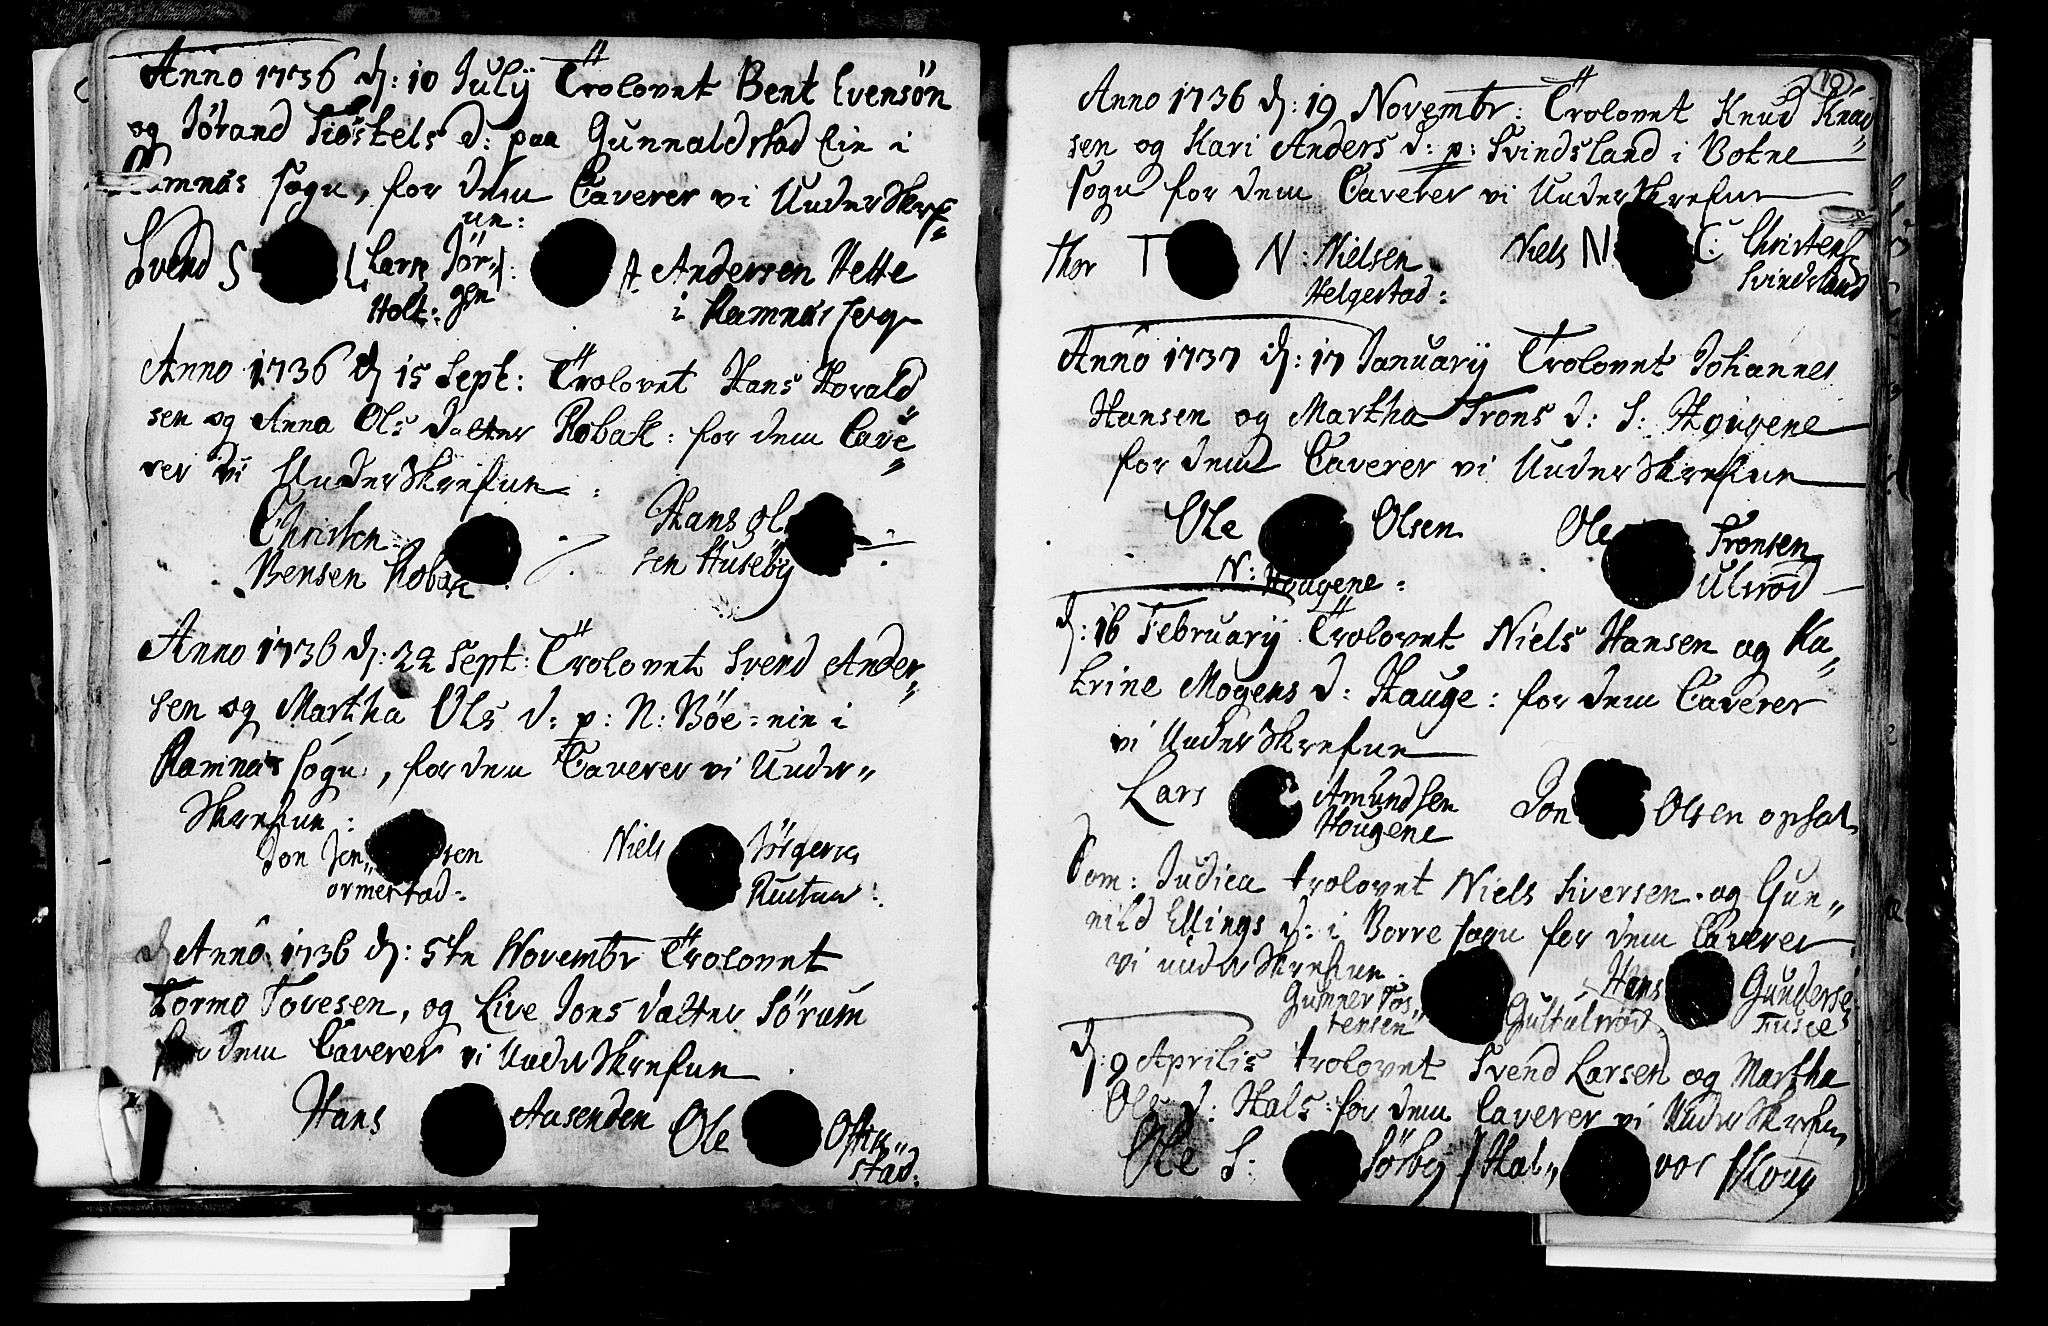 Anno 1736 d: 10 Julÿ Trolovet Bent Evensön
og Jörand Kiöstels d: paa Gunnaldstad Eie i
Ramnæs sogn, for dem Caverer vi UnderSkref-
ne:
Svend S L Lars Jör-
gen A Andersen Hette
Holt: i Ramnæs sogn
Anno 1736 d 15 Sept: Trolovet Hans Horald
sen og Anna Ols datter Robak: for dem Cave
rer vi UnderSkrefne :
Christen Hans Ol
Bensen Robak sen Huseby
Anno 1736 d: 22 Sept: Trolovet Svend Ander-
sen og Martha Ols d: p: N: Böe = eie i
Ramnæs sogn, for dem Caverer vi Under-
Skrefne :
Jon Jen sen Niels Jörgens
ormestad :
d Anno 1736 d: 5te Novembr Trolovet
Tormo Tovesen, og Live Jons datter Sörum
for dem Caverer vi UnderSkrefne
Hans Aasenden Ole
stad :
10
Anno 1736 d: 19 Novembr: Trolovet Knud Knud
sen og Kari Anders d: p: Svindsland i Botne
sogn for dem Caverer vi UnderSkrefne
Thor T N : Nielsen Niels N C: Christens
Helgestad : Svindsland
Anno 1737 d: 17 Januarÿ Trolovet Johannes
Hansen og Martha Trons d: S: Hougene
for dem Caverer vi UnderSkrefne
Ole Olsen Ole Tronsen
N: Hougene : Ulvröd
d: 16 Februarÿ Trolovet Niels Hansen og Ka-
trine Mogens d: Hauge : for dem Caverer
vi UnderSkrefne
Lars Amundsen Jon Olsen opsal
Hougene
Dom: Judica trolovet Niels Siversen og Gun-
nild Ellings d: i Borre sogn for dem Caverer
vi underSkrefne :
Gunner Tos- Hans Gunderse
tensen
d: 9 Aprilis trolovet Svend Larsen og Martha
Ols d: Hals : for dem Caverer vi UnderSkrefne
Ole S: Sörby Hal- vor Skoug